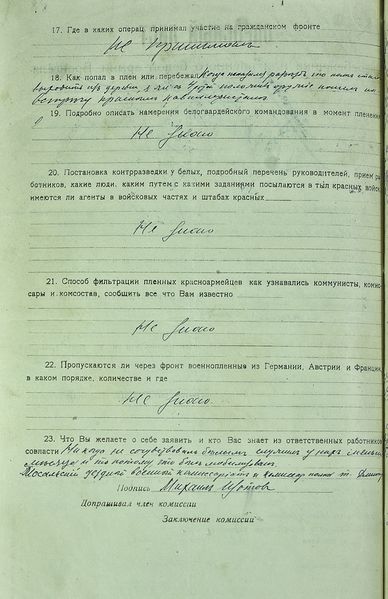 17. Где в каких операц. принимал участие на гражданском фронте
Не принимал
18. Как попал в плен или перебежал Когда
из деревни, я
навстречу красным кавалеристам
19. Подробно описать намерения белогвардейского командования в момент пленения
Не знаю
20. Постановка контрразведки у белых, подробный перечень руководителей, прием ра
ботников, какие люди, каким путем с какими заданиями посылаются в тыл красных войск
имеются ли агенты в войсковых частях и штабах красных
Не знаю
21. Способ фильтрации пленных красноармейцев как узнавались коммунисты, комис
сары и комсостав, сообщить все что Вам известно
Не знаю
22. Пропускаются ли через фронт военнопленные из Германии, Австрии и Франции,
в каком порядке, количестве и где
Не знаю
23. Что Вы желаете о себе заявить и кто Вас знает из ответственных работников
совласти Никогда не сочувствовал белым служил у них
месяца и то потому что был мобилизован
уездной военный комиссариат и комиссар полка т.
Подпись Михаил
Допрашивал член комиссии
Заключение комиссии